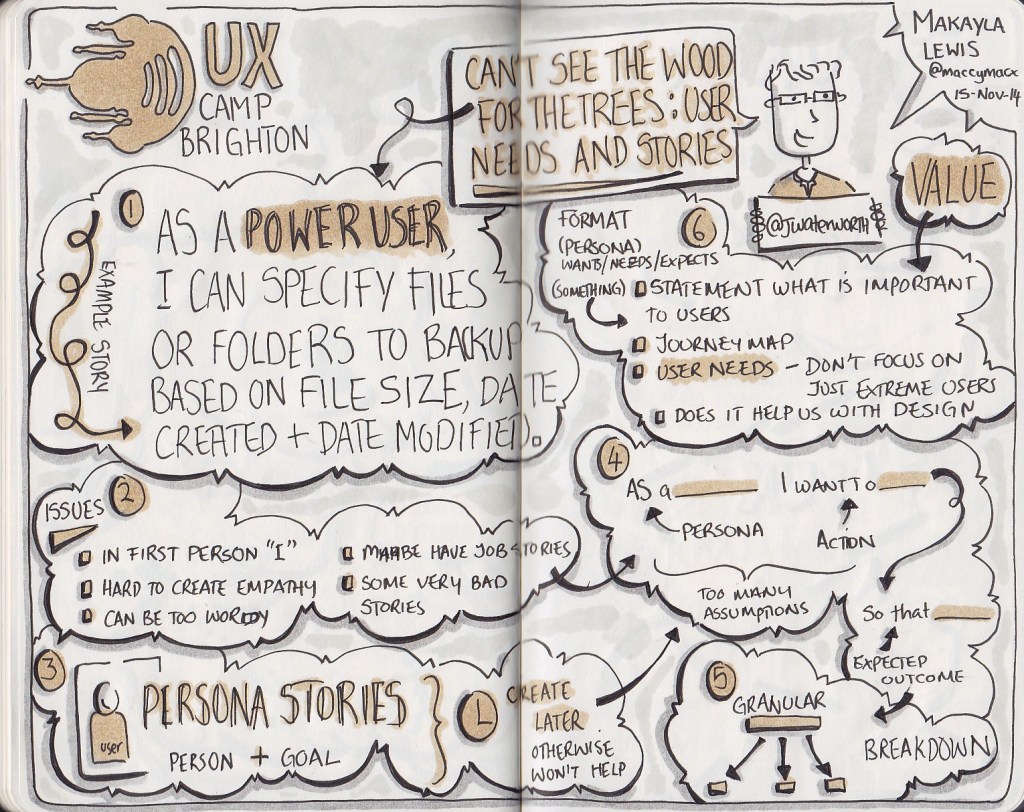 UX
CAMP
BRIGHTON
CAN'T SEE THE WOOD
FOR THE TREES: USER
NEEDS AND STORIES
@JWaterworth
MAKAYLA
LEWIS
@maccymacx
15-Nov-14
1
EXAMPLE STORY
AS A POWER USER,
I CAN SPECIFY FILES
OR FOLDERS TO BACKUP
BASED ON FILE SIZE, DATE
CREATED + DATE MODIFIED.
2
ISSUES
IN FIRST PERSON "I"
HARD TO CREATE EMPATHY
CAN BE TOO WORDY
MAYBE HAVE JOB STORIES
SOME VERY BAD
STORIES
3
user
PERSONA STORIES
PERSON + GOAL
L
CREATE
LATER
OTHERWISE
WON'T HELP
4
AS a
I WANT TO
PERSONA
ACTION
TOO MANY
ASSUMPTIONS
So that
EXPECTED
OUTCOME
5
GRANULAR
BREAKDOWN
6
FORMAT
(PERSONA)
WANTS/NEEDS/EXPECTS
(SOMETHING)
VALUE
STATEMENT WHAT IS IMPORTANT
TO USERS
JOURNEY MAP
USER NEEDS - DON'T FOCUS ON
JUST EXTREME USERS
DOES IT HELP US WITH DESIGN